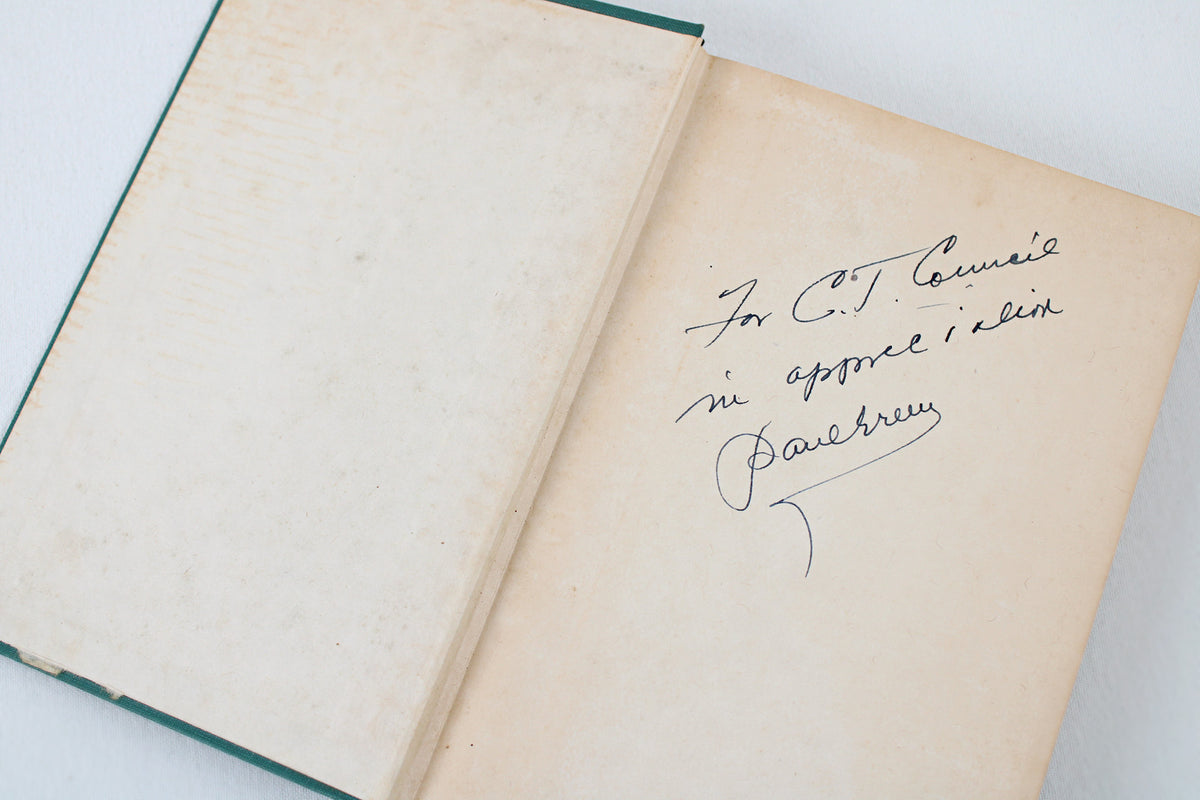 For C.T. Council
in appreciation
Paul